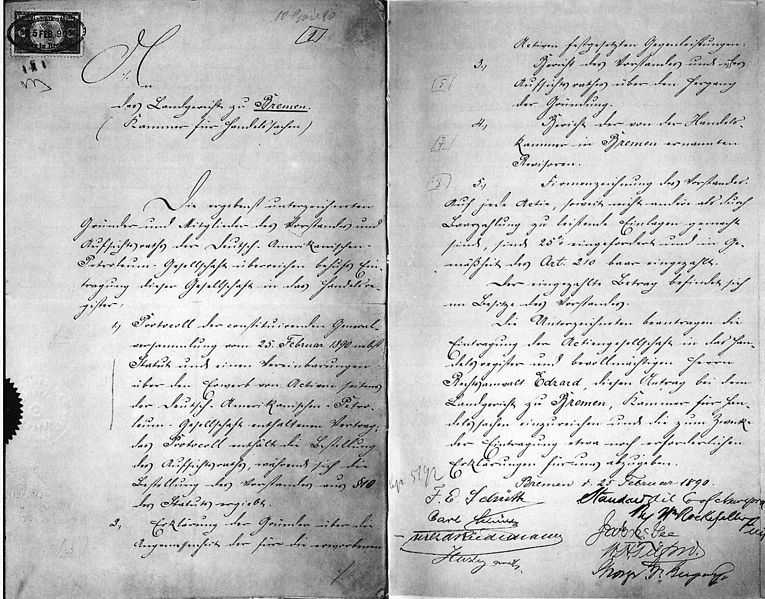 [1]
An
das Landgericht zu Bremen.
(Kammer für Handelssachen)
Die ergebenst unterzeichneten
Gründer und Mitglieder des Vorstandes und
Aufsichtsraths der Deutsch-Amerikanischen-
Petroleum-Gesellschaft überreichen behufs Ein-
tragung dieser Gesellschaft in das Handelsre-
gister:
1, Protocoll der constituirenden General-
versammlung vom 25. Februar 1890 nebst
Statut und einen Vereinbarungen
über den Erwerb von Actien seitens
der Deutsch-Amerikanischen-Petro-
leum-Gesellschaft enthaltenen Vertrag.
Das Protocoll enthält die Bestellung
des Aufsichtsraths, während sich die
Bestellung des Vorstandes aus § 10
des Statuts ergiebt.
2, Erklärung der Gründer über die
Angemessenheit der für die erworbenen
Actien festgesetzten Gegenleistungen.
3, Bericht des Vorstandes und des
Aufsichtsrathes über den Hergang
der Gründung.
4, Bericht der von der Handels-
kammer in Bremen ernannten
Revisoren.
5, Firmenzeichnung des Vorstandes.
Auf jede Actie, soweit nicht andere als durch
Baarzahlung zu leistende Einlagen gemacht
sind, sind 25% eingefordert und in Ge-
mäßheit des Art. 210 baar eingezahlt.
Der eingezahlte Betrag befindet sich
im Besitze des Vorstandes.
Die Unterzeichneten beantragen die
Eintragung der Actiengesellschaft in das Han-
delsregister und bevollmächtigen Herrn
Rechtsanwalt Edzard, diesen Antrag bei dem
Landgericht zu Bremen, Kammer für Han-
delssachen einzureichen und die zum Zweck
der Eintragung etwa noch erforderlichen
Erklärungen für uns abzugeben.
Bremen d. 25 Februar 1890.
F. E. Schütte
Carl Schütte
Standard Oil Co of
By Wm Rockefeller